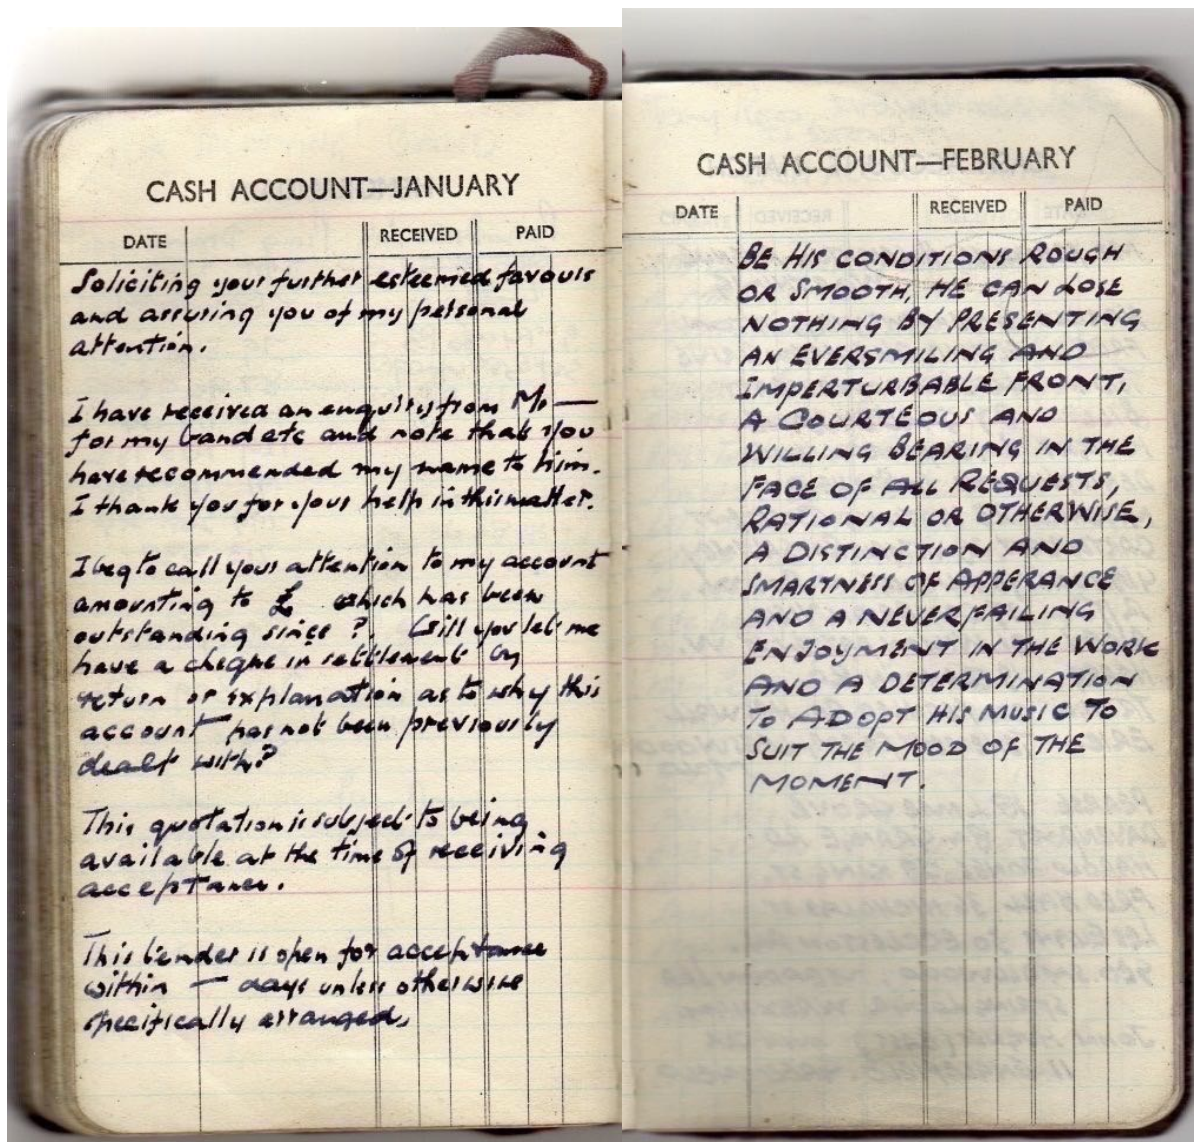 CASH ACCOUNT—JANUARY
DATE RECEIVED PAID
Soliciting your further esteemed favours
and assuring you of my personal
attention.
I have received an enquiry from Mr —
for my band etc and note that you
have recommended my name to him.
I thank you for your help in this matter.
I beg to call your attention to my account
amounting to £ which has been
outstanding since ?. Will you let me
have a cheque in settlement by
return or explanation as to why this
account has not been previously
dealt with?
This quotation is subject to being
available at the time of receiving
acceptance.
This tender is open for acceptance
within — days unless otherwise
specifically arranged.
CASH ACCOUNT—FEBRUARY
DATE RECEIVED PAID
BE HIS CONDITIONS ROUGH
OR SMOOTH, HE CAN LOSE
NOTHING BY PRESENTING
AN EVERSMILING AND
IMPERTURBABLE FRONT,
A COURTEOUS AND
WILLING BEARING IN THE
FACE OF ALL REQUESTS,
RATIONAL OR OTHERWISE,
A DISTINCTION AND
SMARTNESS OF APPERANCE
AND A NEVERFAILING
ENJOYMENT IN THE WORK
AND A DETERMINATION
TO ADOPT HIS MUSIC TO
SUIT THE MOOD OF THE
MOMENT.